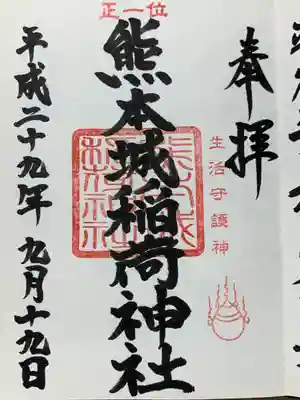 奉拝
生治守護神
正一位
熊本城稲荷神社
平成二十九年九月十九日